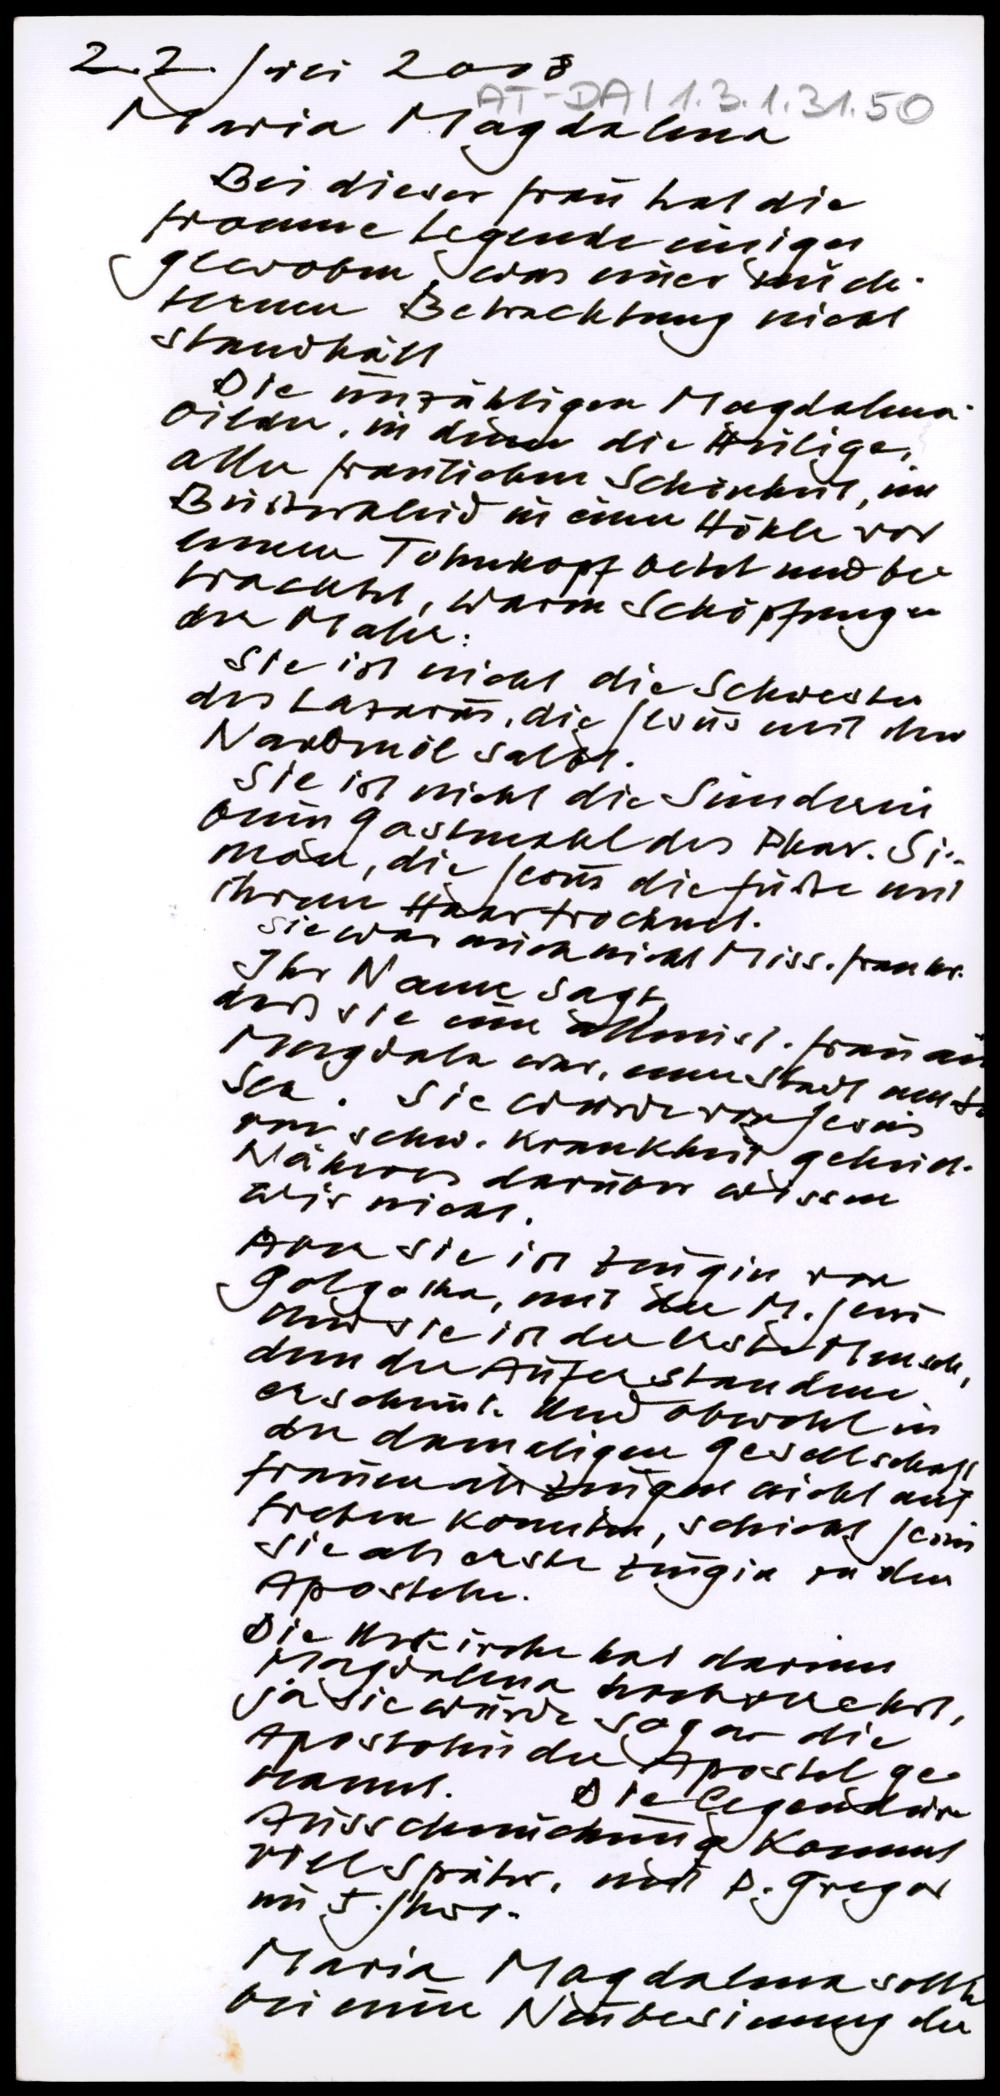 22. Juli 2008
AT-DA I 1.3.1.31.50
Maria Magdalena
Bei dieser Frau hat die
fromme Legende einiges
gewoben, was einer nüch-
ternen Betrachtung nicht
standhält
Die unzähligen Magdalena-
bilder, in denen die Heilige,
aller fraulichen Schönheit, im
Büsserkleid in einer Höhle vor
einem Totenkopf betet und be-
trachtet, waren Schöpfungen
der Maler:
Sie ist nicht die Schwester
des Lazarus, die Jesus mit dem
Nardenöl salbt.
Sie ist nicht die Sünderin
beim Gastmahl des Phar. Si-
mon, die Jesus die Füße mit
ihrem Haar trocknet.
Sie war auch nicht Miss.
Ihr Name sagt,
daß sie eine Frau aus
Magdala war, einer Stadt am
See. Sie wurde von Jesus
von schw. Krankheit geheilt.
Näheres darüber wissen
wir nicht.
Aber sie ist Zeugin von
Golgotha, mit der M. Jesu
und sie ist der erste Mensch,
dem der Auferstandene
erscheint. Und obwohl in
der damaligen Gesellschaft
Frauen als Zeugen nicht auf-
treten konnten, schickt Jesus
sie als erste Zeugin zu den
Aposteln.
Die Urkirche hat darum
Magdalena hochverehrt,
ja sie wurde sogar die
Apostolin der Apostel ge-
nannt. Die legendäre
Ausschmückung kommt
viel später, mit P. Gregor
im 5. Jhrt.
Maria Magdalena sollte
bei einer Neubesinnung der